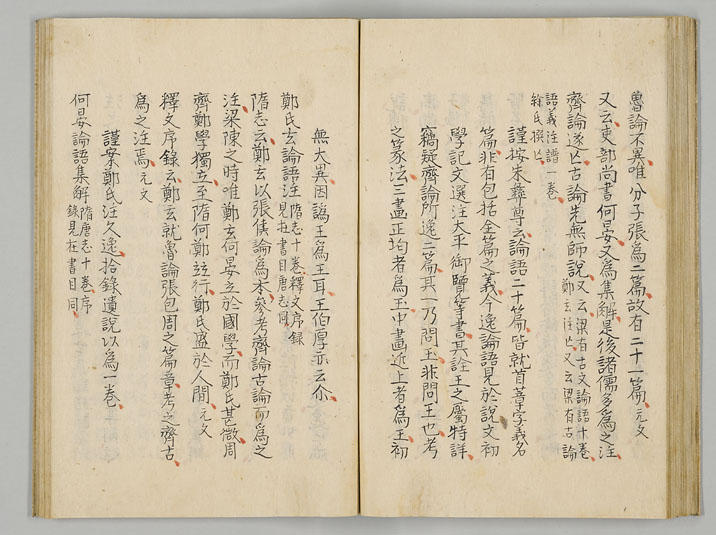 魯論不異唯分子張為二篇故有二十一篇元文
又云吏部尚書何晏又為集解是後諸儒多為之注
齊論遂亡古論先無師說又云梁有古文論語十卷
鄭玄注亡又云梁有古論
語義注譜一卷
徐氏撰亡
謹按朱彝尊云論語二十篇皆就首章字義名
篇非有包括全篇之義今逸論語見於說文初
學記文選注太平御覽等書其詮王之屬特詳
竊疑齊論所逸二篇其一乃問玉非問王也考
之篆法三畫正均者為王中畫近上者為王初
無大異因譌玉為王耳王伯厚亦云尒
鄭氏玄論語注隋志十卷釋文序錄
見在書目唐志同
隋志云鄭玄以張侯論為本參考齊論古論而為之
注梁陳之時唯鄭玄何晏立於國學而鄭氏甚微周
齊鄭學獨立至隋何鄭竝行鄭氏盛於人間元文
釋文序錄云鄭玄就魯論張包周之篇章考之齊古
為之注焉元文
謹案鄭氏注久逸拾錄遺說以為一卷
何晏論語集解隋唐志十卷序
錄見在書目同